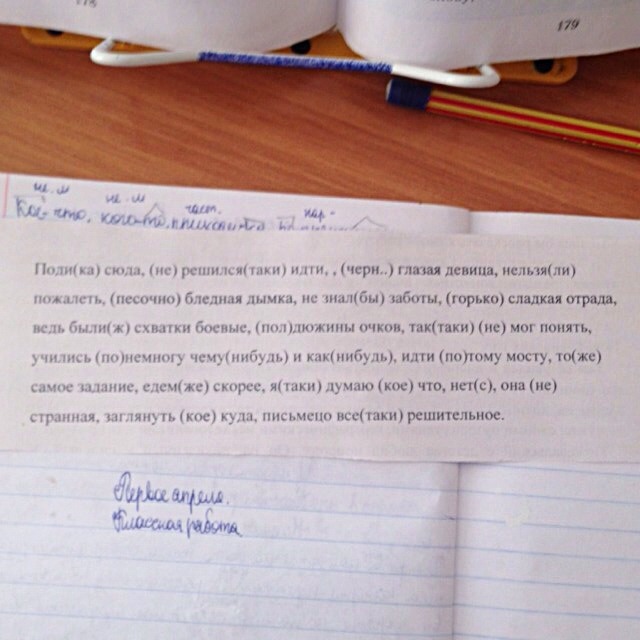 178
179
не. м не. м част. нар.
Кое-что, кого-то,
Поди(ка) сюда, (не) решился(таки) идти, , (черн..) глазая девица, нельзя(ли)
пожалеть, (песочно) бледная дымка, не знал(бы) заботы, (горько) сладкая отрада,
ведь были(ж) схватки боевые, (пол)дюжины очков, так(таки) (не) мог понять,
учились (по)немногу чему(нибудь) и как(нибудь), идти (по)тому мосту, то(же)
самое задание, едем(же) скорее, я(таки) думаю (кое) что, нет(с), она (не)
странная, заглянуть (кое) куда, письмецо все(таки) решительное.
Первое апреля.
Классная работа